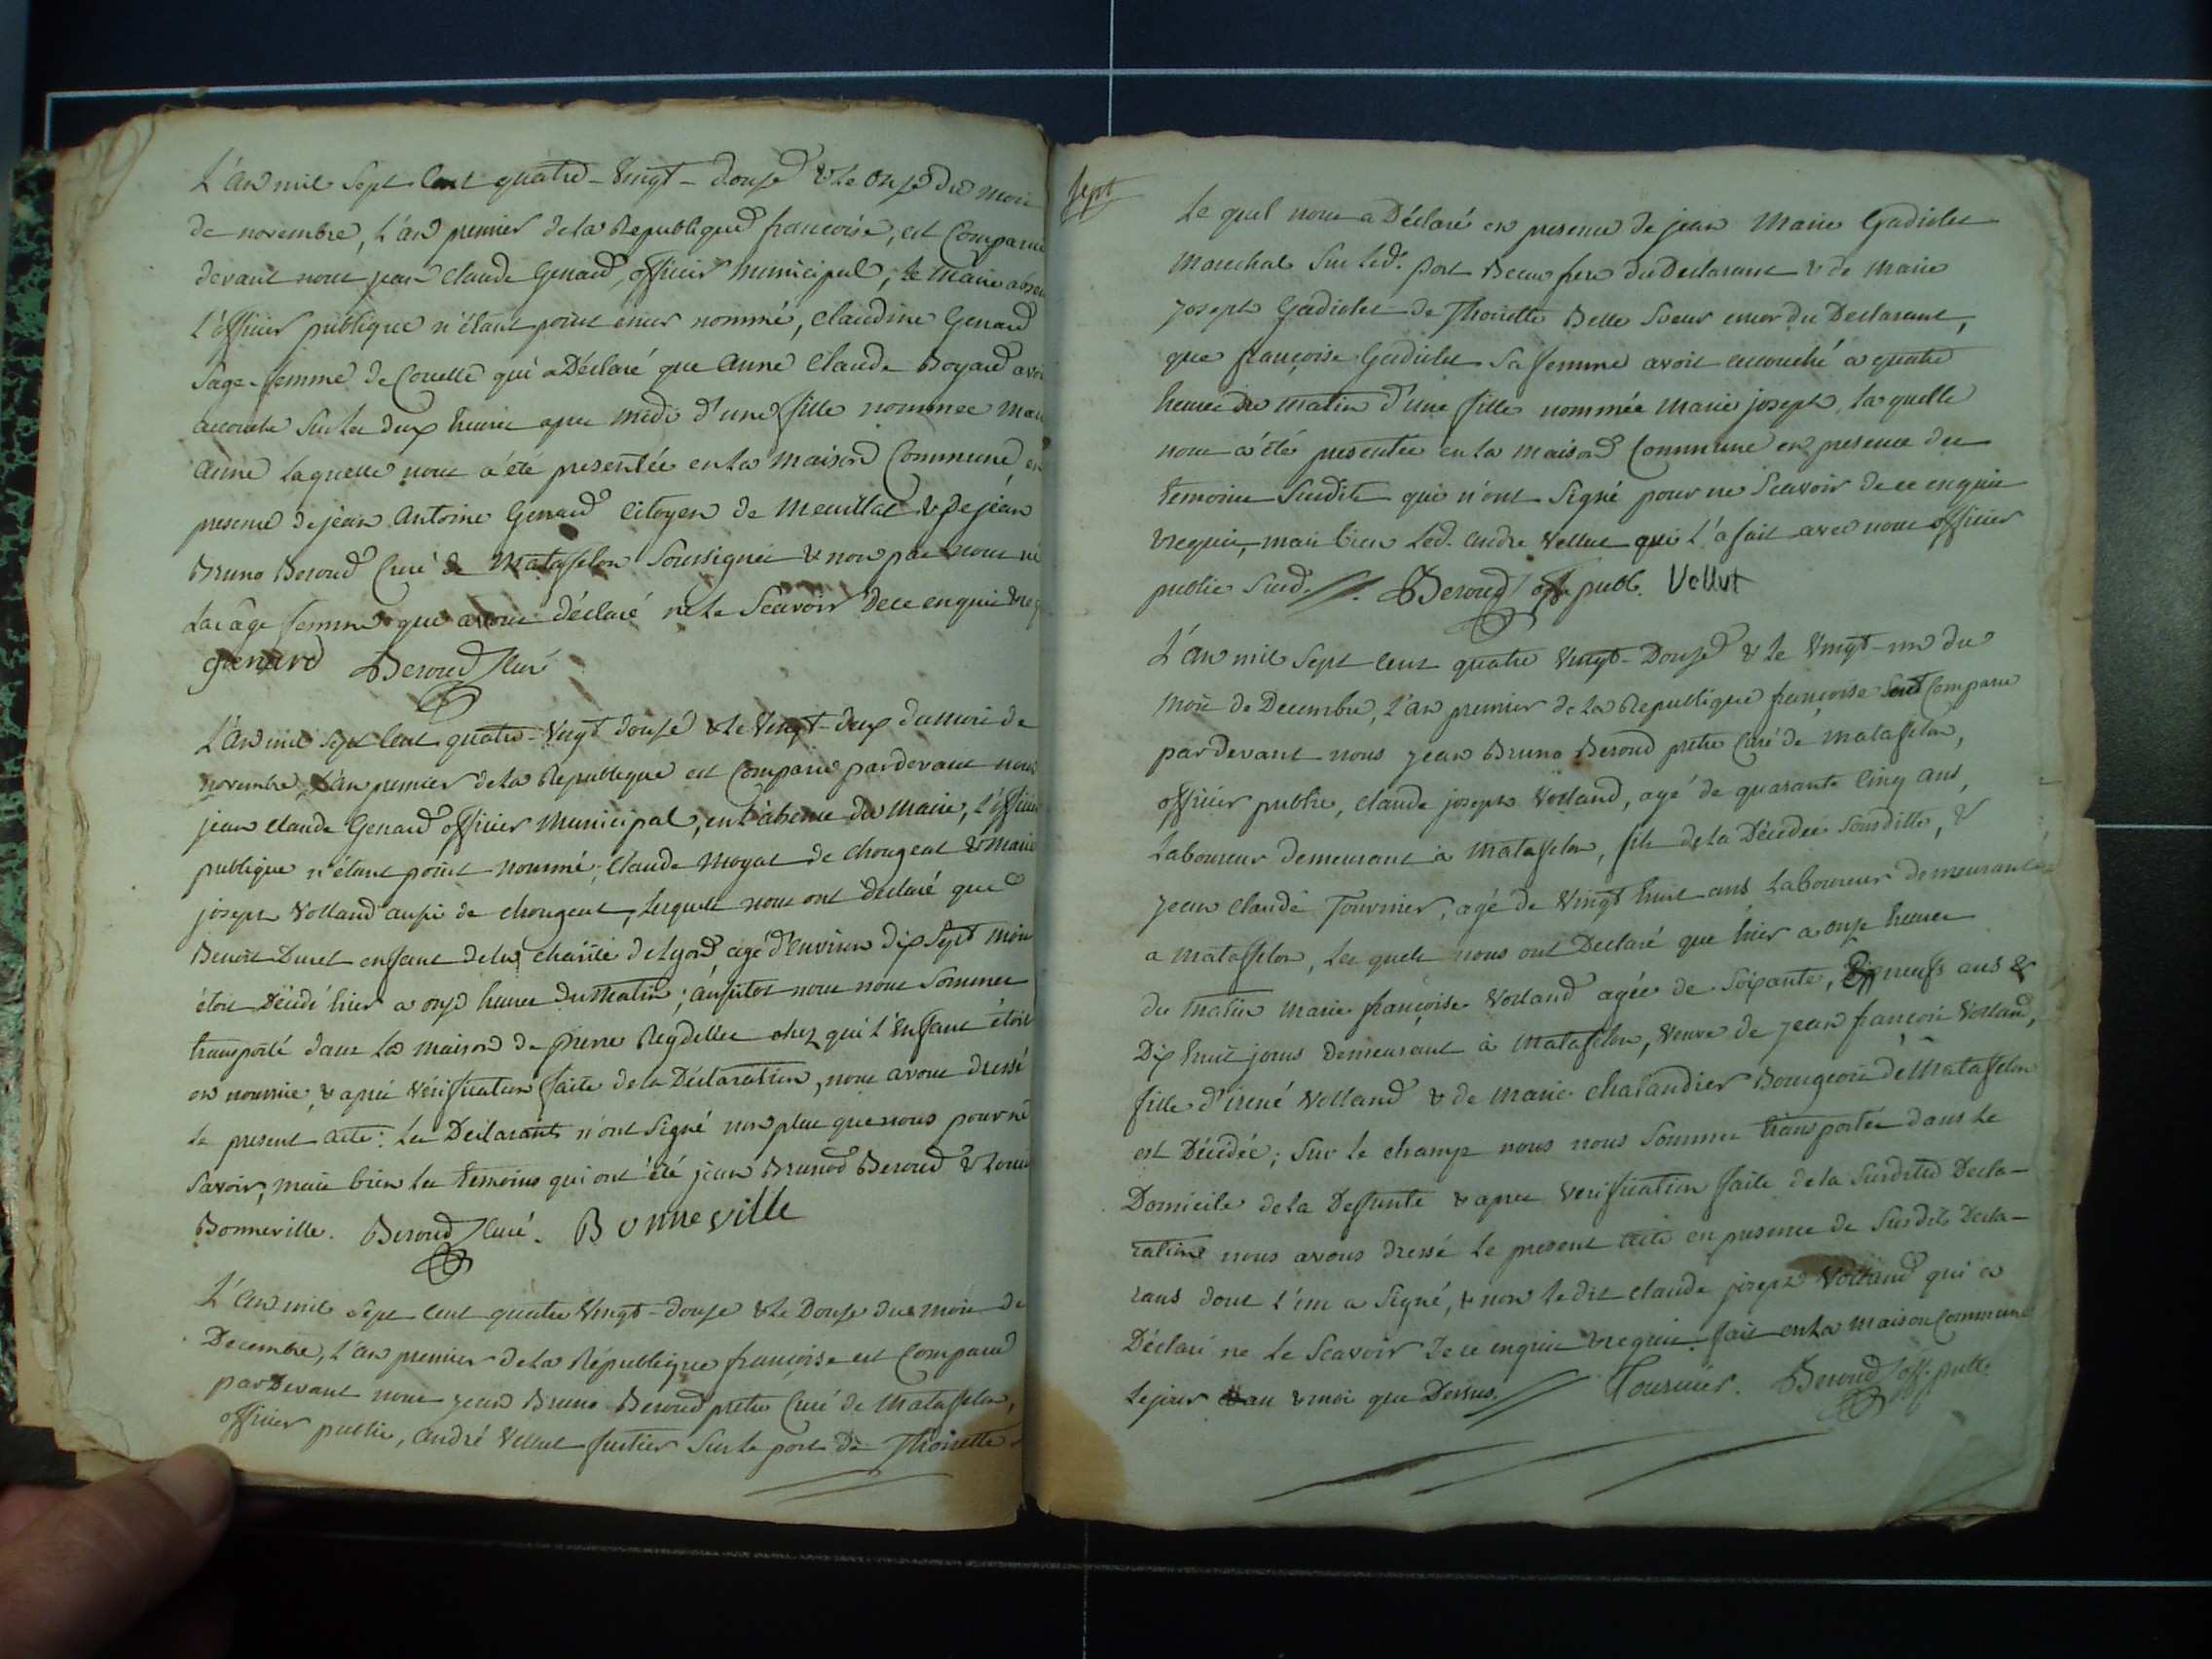 L'an mil sept Cent quatre-vingt-douse & le onse du mois
de novembre, L'an premier de la Republique françoise, est Comparue
devant nous jean Claude Genard, officier municipal, le Maire absent
L'officier publique n'étant point encor nommé, Claudine Genard
Sage-femme de qui a Déclaré que Anne Claude Boyard avoit
accouché sur les deux heures apres midi d'une fille nommée Marie
Anne Laquelle nous a été presentée en la maison Commune en
presence de jean Antoine Genard Citoyen de & de jean
Bruno Beroud Curé de Mataffelon Soussignés & non par nous ni
La sage femme que avons déclaré ne le Sçavoir de ce enquis & req
genard Beroud Curé
L'an mil sept Cent quatre-vingt douse & le vingt-deux du mois de
novembre, L'an premier de la Republique est Comparu pardevant nous
jean Claude Genard officier Municipal, en l'absence du Maire, L'officier
publique n'étant point nommé; Claude Moyat de Chougeat & Marie
joseph Volland aussi de Chougeat, lesquels nous ont déclaré que
Benoit Duret enfant de la Charité de Lyon, agé d'environ dix sept mois
étoit Décédé hier a onse heures du Matin; aussitot nous nous Sommes
transporté dans la maison de pierre Reydellet chez qui l'Enfant étoit
en nourrice, & après vérification faite de la Déclaration, nous avons dressé
le present acte: Les Déclarants n'ont Signé non plus que nous pour ne
Savoir, mais bien les temoins qui ont été jean Bruno Beroud & Louis
Bonneville. Beroud Curé. Bonneville
L'an mil sept cent quatre vingt-douse & le Douse du mois de
Decembre, L'an premier de la République françoise est Comparu
parDevant nous jean Bruno Beroud prêtre Curé de Mataffelon,
officier public, André Vellut fustier sur le port de Thoirette
sept
Le quel nous a Déclaré en presence de jean Marie Gadiolet
Marechal sur led. port Beau frere du Declarant & de Marie
joseph Gadiolet de Thoirette Belle Soeur encor du Declarant,
que françoise Gadiolet Sa femme avoit accouché a quatre
heures du matin d'une fille nommée Marie joseph, la quelle
nous a été presentée en la maison Commune en presence des
temoins Susdits qui n'ont Signé pour ne Sçavoir de ce enquis
& requis, mais bien led. André Vellut qui l'a fait avec nous officier
public Susd. Beroud off. publ. Vellut
L'an mil Sept Cent quatre vingt-Douse & le vingt-un du
mois de Decembre, l'an premier de la Republique françoise sont Comparu
pardevant nous jean Bruno Beroud prêtre Curé de mataffelon,
officier public, Claude joseph Volland, agé de quarante Cinq ans,
Laboureur demeurant à Mataffelon, fils de la Décédée sousditte, &
jean Claude Tournier, agé de vingt huit ans Laboureur demeurant
a Mataffelon, Les quels nous ont Declaré que hier a onze heures
du Matin Marie françoise Volland agée de Soixante, Dix neufs ans &
Dix huit jours Demeurant à Mataffelon, Veuve de jean françois Volland,
fille d'irené Volland & de Marie Chalandier Bourgeois de Mataffelon
est Décédée; Sur le champ nous nous Sommes transportés dans le
Domicile de la Deffunte & apres verification faite de la Susditte Decla-
ration nous avons dressé le present acte en presence de Susdits Decla-
rans dont l'un a Signé, & non le dit Claude joseph Volland qui a
Déclaré ne le Sçavoir de ce enquis & requis. fait en la maison Commune
Le jour an & mois que Dessus. Tournier. Beroud off. publ.